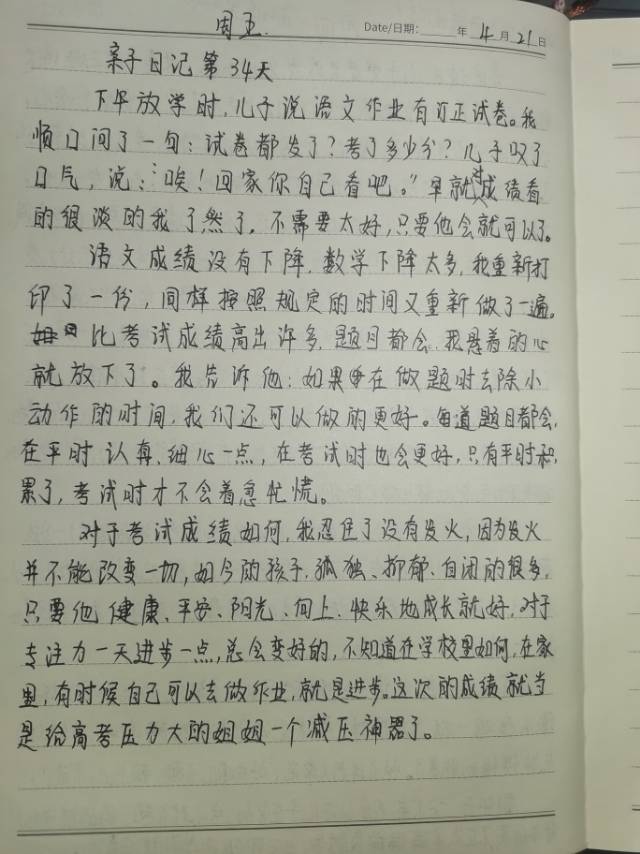 周五.
Date/日期: 年 4 月 21 日
亲子日记第34天
下午放学时,儿子说语文作业有订正试卷。我
顺口问了一句:试卷都发了?考了多少分?儿子叹了
口气,说:“唉!回家你自己看吧。”早就对成绩看
的很淡的我了然了。不需要太好,只要他会就可以了。
语文成绩没有下降,数学下降太多,我重新打
印了一份,同样按照规定的时间又重新做了一遍。
比考试成绩高出许多,题目都会,我悬着的心
就放下了。我告诉他:如果在做题时去除小
动作的时间,我们还可以做的更好。每道题目都会,
在平时认真、细心一点,在考试时也会更好,只有平时积
累了,考试时才不会着急忙慌。
对于考试成绩如何,我忍住了没有发火,因为发火
并不能改变一切,如今的孩子,孤独、抑郁、自闭的很多,
只要他健康、平安、阳光、向上、快乐地成长就好,对于
专注力一天进步一点,总会变好的,不知道在学校里如何,在家
里,有时候自己可以去做作业,就是进步。这次的成绩就当
是给高考压力大的姐姐一个减压神器了。